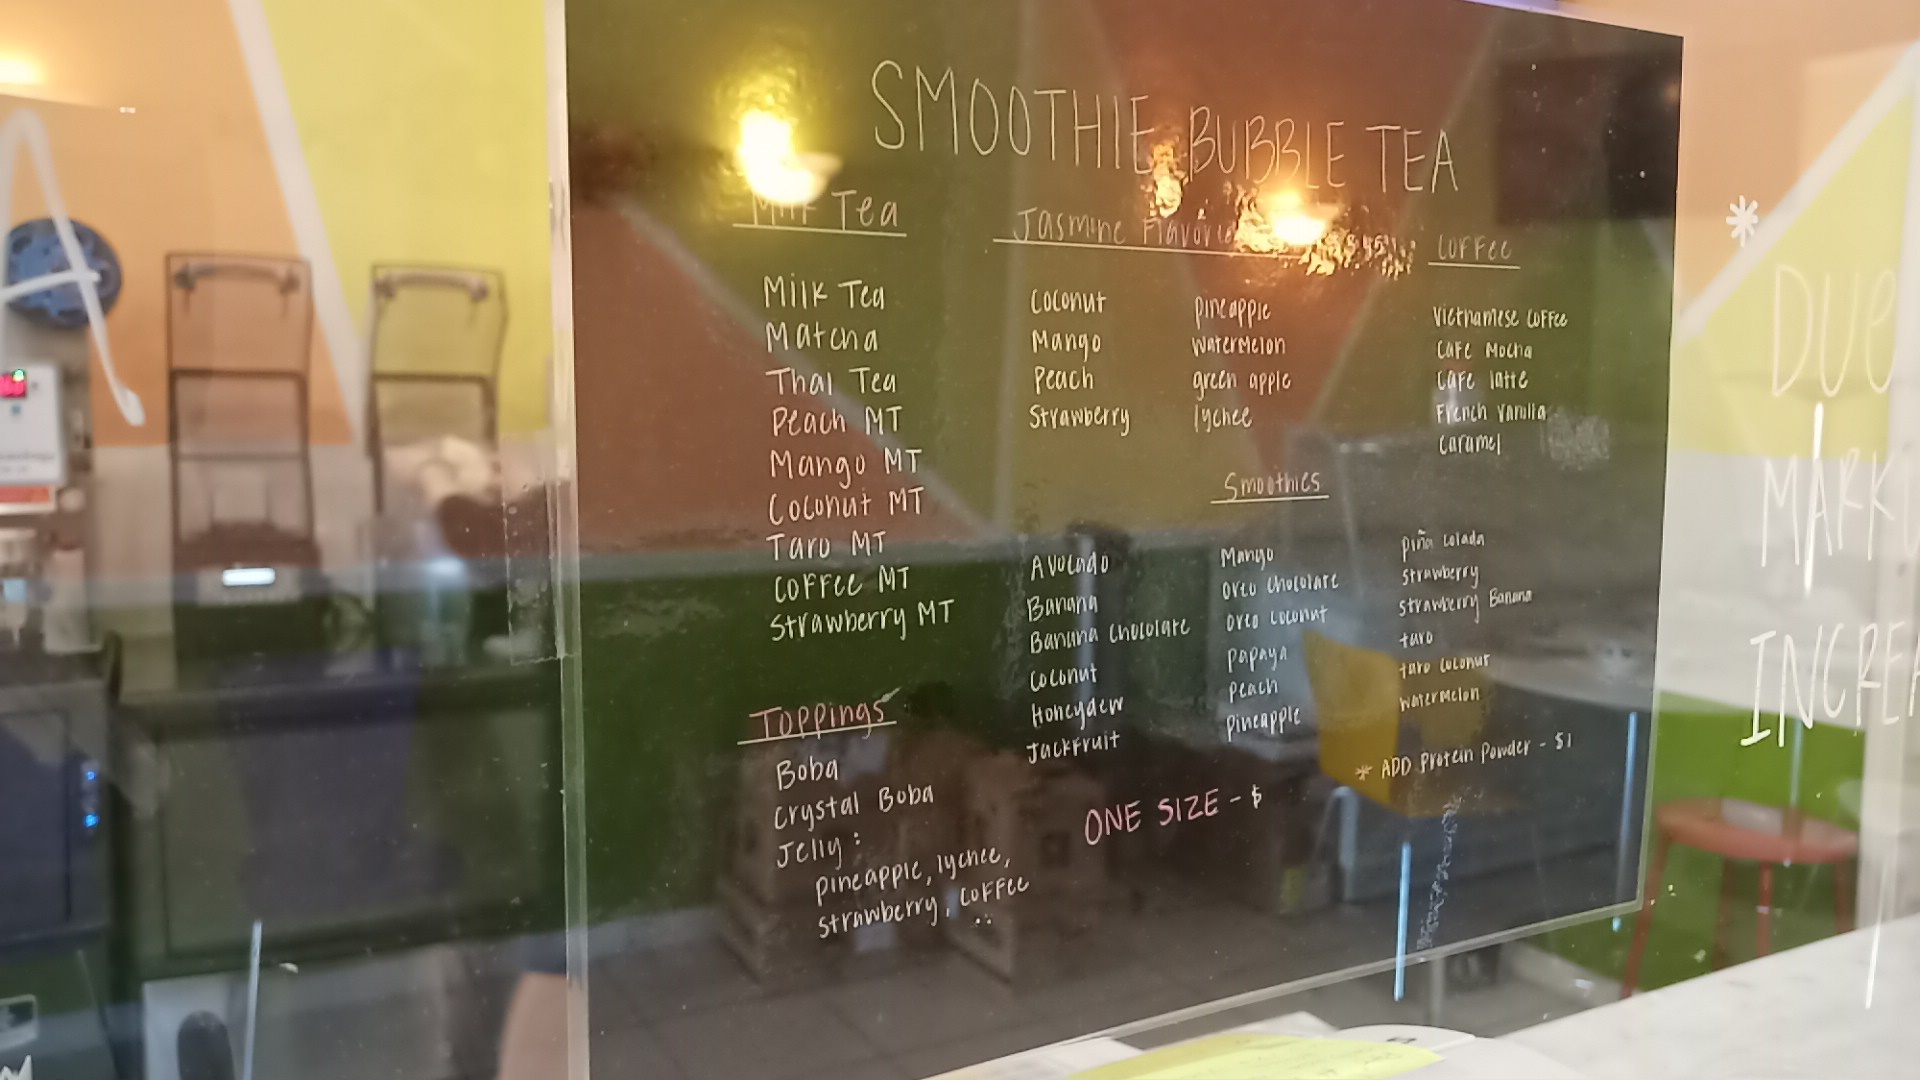 SMOOTHIE BUBBLE TEA
Milk Tea
Milk Tea
Matcha
Thai Tea
Peach MT
Mango MT
Coconut MT
Taro MT
Coffee MT
Strawberry MT
Toppings
Boba
Crystal Boba
Jelly:
pineapple, lychee,
strawberry, coffee
Jasmine
Coconut
Mango
Peach
Strawberry
pineapple
watermelon
green apple
lychee
Coffee
Vietnamese Coffee
Cafe Mocha
Cafe latte
French Vanilla
Caramel
Smoothies
Avocado
Banana
Banana Chocolate
Coconut
Honeydew
Jackfruit
Mango
Oreo Chocolate
Oreo Coconut
Papaya
Peach
Pineapple
Piña Colada
Strawberry
Strawberry Banana
taro
taro Coconut
watermelon
* ADD Protein Powder - $1
ONE SIZE - $
A
*
DUE
MARK
INCREA